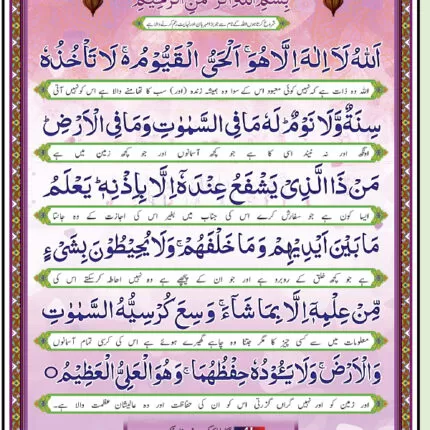 بِسْمِ اللهِ الرَّحْمٰنِ الرَّحِيْمِ
اَللهُ لَاۤ اِلٰهَ اِلَّا هُوَۚ اَلْحَیُّ الْقَیُّوْمُ ەۚ لَا تَاْخُذُهٗ
اللہ وہ ذات ہے کہ نہیں کوئی معبود اس کے سوا وہ ہمیشہ زندہ (اور) سب کا تھامنے والا ہے اس کو نہیں آتی
سِنَةٌ وَّلَا نَوْمٌؕ لَهٗ مَا فِی السَّمٰوٰتِ وَمَا فِی الْاَرْضِؕ
اونگھ اور نہ نیند اسی کا ہے جو کچھ آسمانوں اور جو کچھ زمین میں ہے
مَنْ ذَا الَّذِیْ یَشْفَعُ عِنْدَهٗۤ اِلَّا بِاِذْنِهٖؕ یَعْلَمُ
ایسا کون ہے جو سفارش کرے اس کی جناب میں بغیر اس کی اجازت کے وہ جانتا
مَا بَیْنَ اَیْدِیْهِمْ وَمَا خَلْفَهُمْۚ وَلَا یُحِیْطُوْنَ بِشَیْءٍ
ہے جو کچھ خلق کے روبرو ہے اور جو ان کے پیچھے ہے وہ نہیں احاطہ کرسکتے اس کی
مِّنْ عِلْمِهٖۤ اِلَّا بِمَا شَآءَۚ وَسِعَ كُرْسِیُّهُ السَّمٰوٰتِ
معلومات میں سے کسی چیز کا مگر جتنا وہ چاہے گھیرے ہوئے ہے اس کی کرسی تمام آسمانوں
وَالْاَرْضَۚ وَلَا یَـُٔوْدُهٗ حِفْظُهُمَاۚ وَهُوَ الْعَلِیُّ الْعَظِیْمُ ○
اور زمین کو اور نہیں گراں گزرتی اس کو ان کی حفاظت اور وہ عالیشان عظمت والا ہے۔